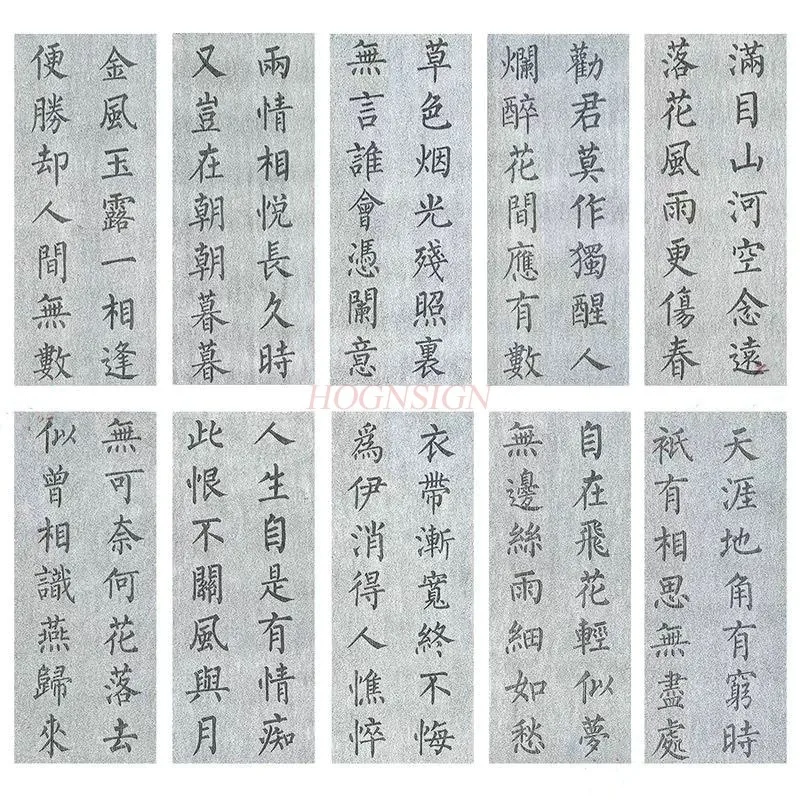 滿目山河空念遠
落花風雨更傷春
勸君莫作獨醒人
爛醉花間應有數
草色烟光殘照裏
無言誰會憑闌意
兩情相悅長久時
又豈在朝朝暮暮
金風玉露一相逢
便勝却人間無數
HOGNSIGN
天涯地角有窮時
衹有相思無盡處
自在飛花輕似夢
無邊絲雨細如愁
衣帶漸寬終不悔
爲伊消得人憔悴
人生自是有情痴
此恨不關風與月
無可奈何花落去
似曾相識燕歸來